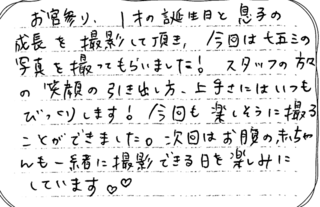 お宮参り、1才の誕生日と息子の
成長を撮影して頂き、今回は七五三の
写真を撮ってもらいました！スタッフの方々
の笑顔の引き出し方、上手さにはいつも
びっくりします！今回も楽しそうに撮る
ことができました。次回はお腹の赤ちゃ
んも一緒に撮影できる日を楽しみに
しています♡♡